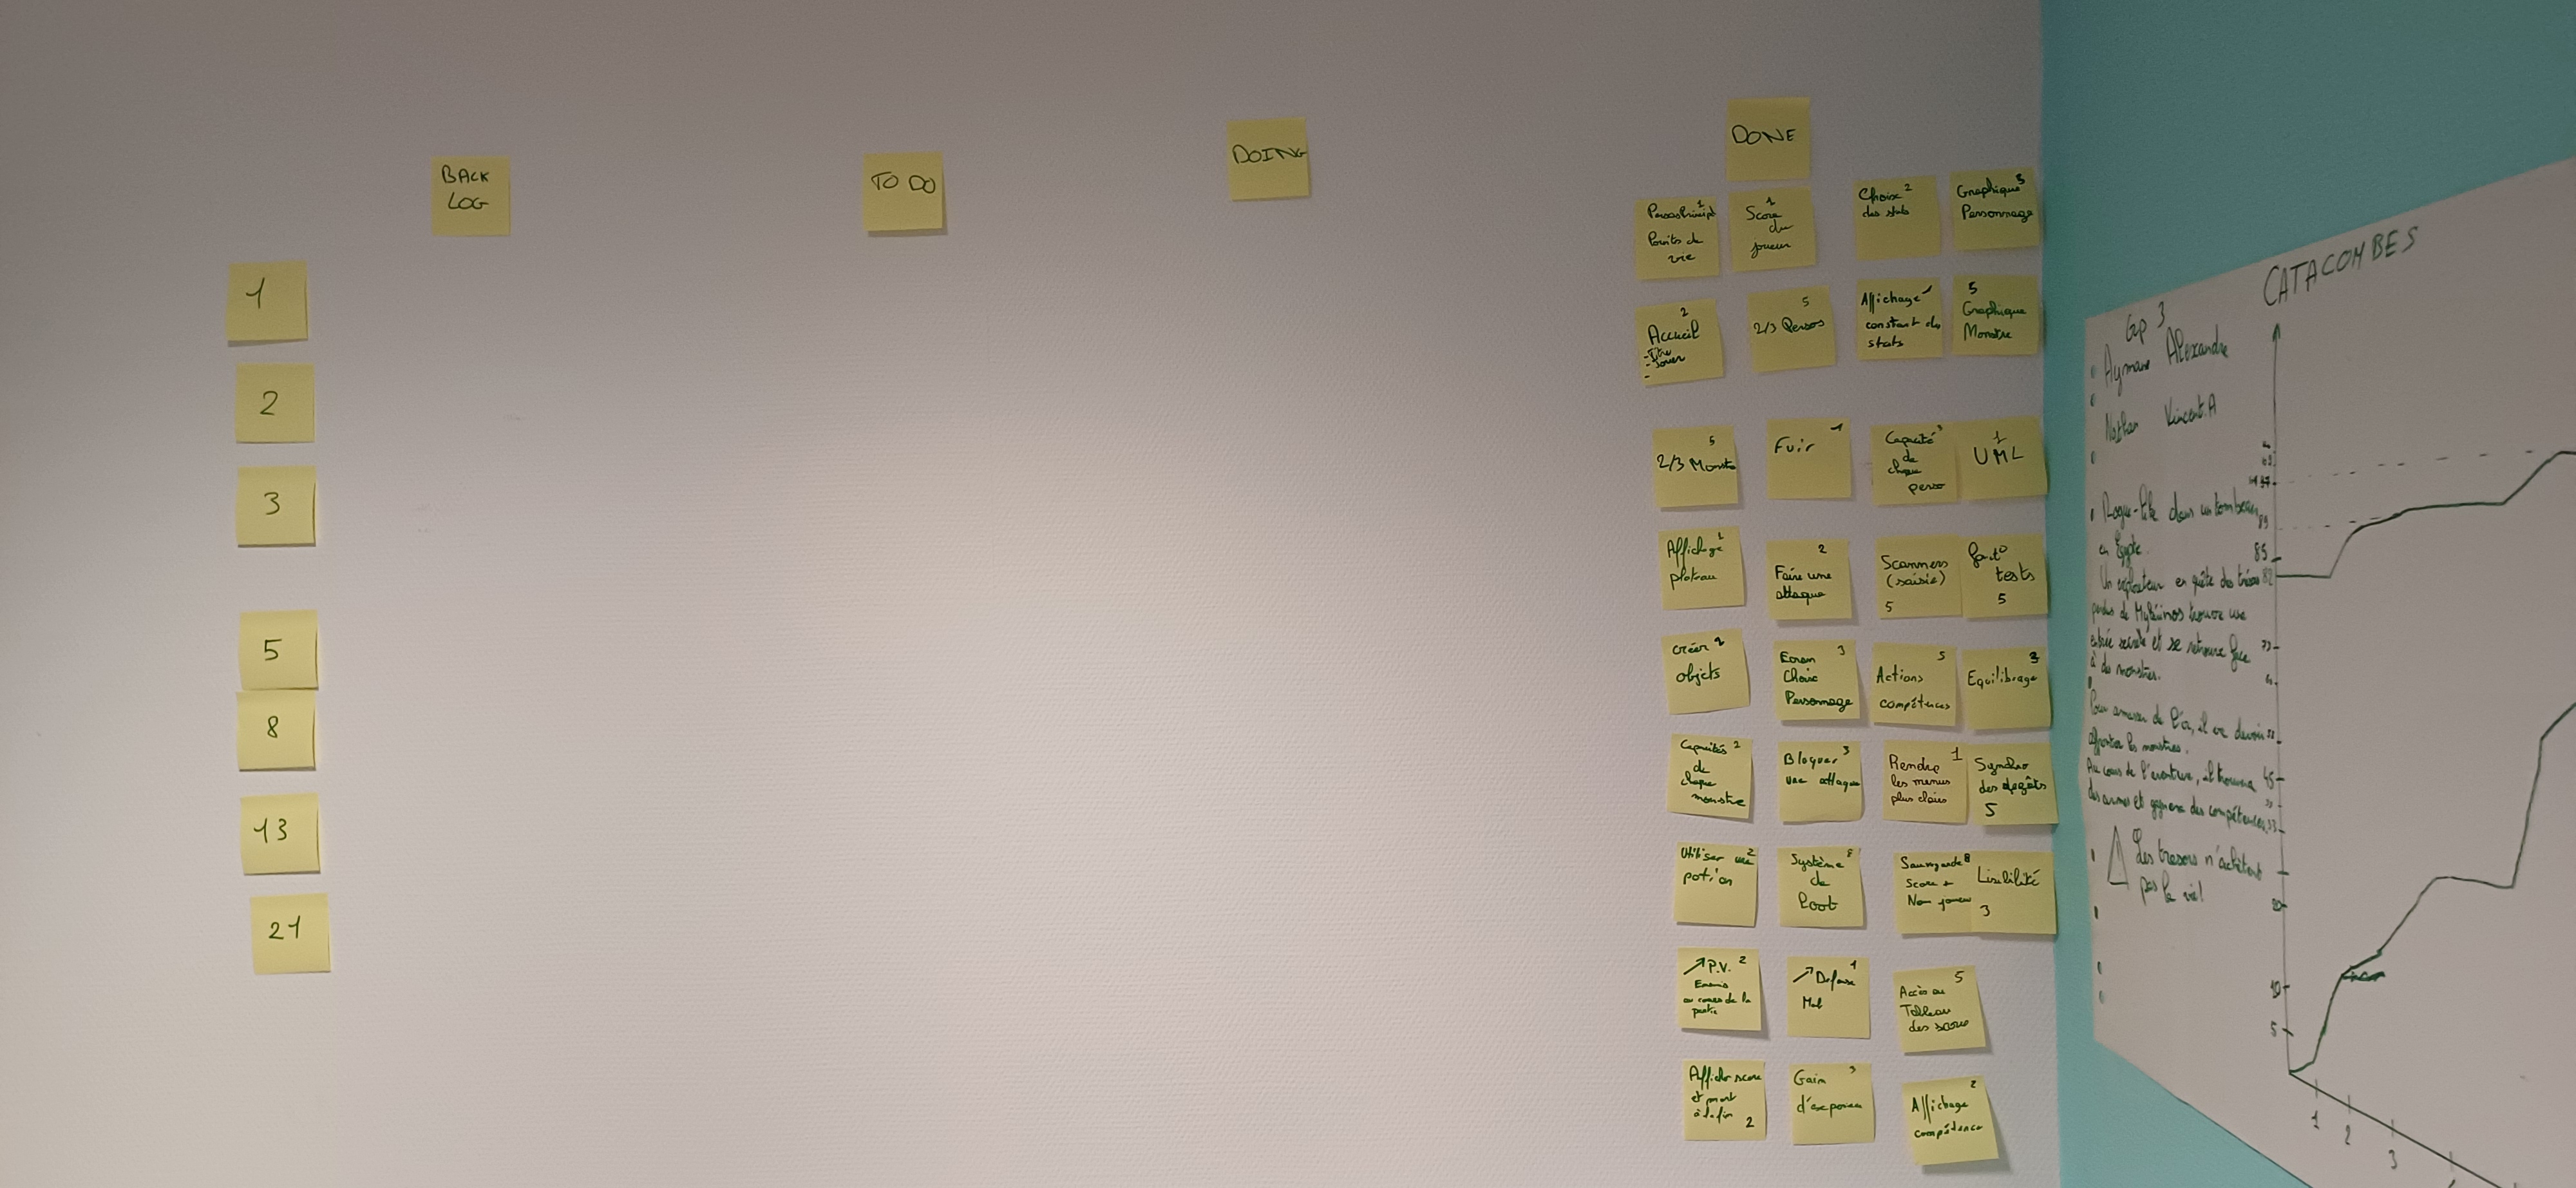 BACK
LOG
TO DO
DOING
DONE
1
2
3
5
8
13
21
1
Points de
vie
1
Score
du
joueur
Choix 2
des stats
Graphique 3
Personnage
2
Accueil
- Titre
- Jouer
-
5
2/3 Persos
Affichage 1
constant des
stats
5
Graphique
Monstre
5
2/3 Monstre
1
Fuir
Capacité 3
de
chaque
perso
1
UML
Affichage 1
plateau
2
Faire une
attaque
Scanners
(saisie)
5
tests
5
créer 2
objets
3
Ecran
Choix
Personnage
5
Actions
compétences
3
Equilibrage
Capacités 2
de
chaque
monstre
3
Bloquer
une attaque
Rendre 1
les menus
plus clairs
Synchro
des dégâts
5
Utiliser une 2
potion
Système 8
de
Loot
Sauvegarde 8
Score +
Nom joueur
Lisibilité
3
↗ P.V. 2
Ennemis
au cours de la
partie
1
↗ Defense
5
Accès au
Tableau
des scores
Afficher score
et mort
à la fin
2
Gain 3
d'experience
2
Affichage
compétence
CATACOMBES
Gp 3
Aymane Alexandre
Nathan Vincent.A
Rogue-like dans un tombeau
en Egypte.
Un explorateur en quête des trésors
perdus de trouve une
entrée secrète et se retrouve face
à des monstres.
Pour amasser de l'or, il va devoir
affronter les monstres.
Au cours de l'aventure, il trouvera
des armes et gagnera des compétences.
Les tresors n'achètent
pas la vie!
89
85
82
45
20
10
5
1
2
3